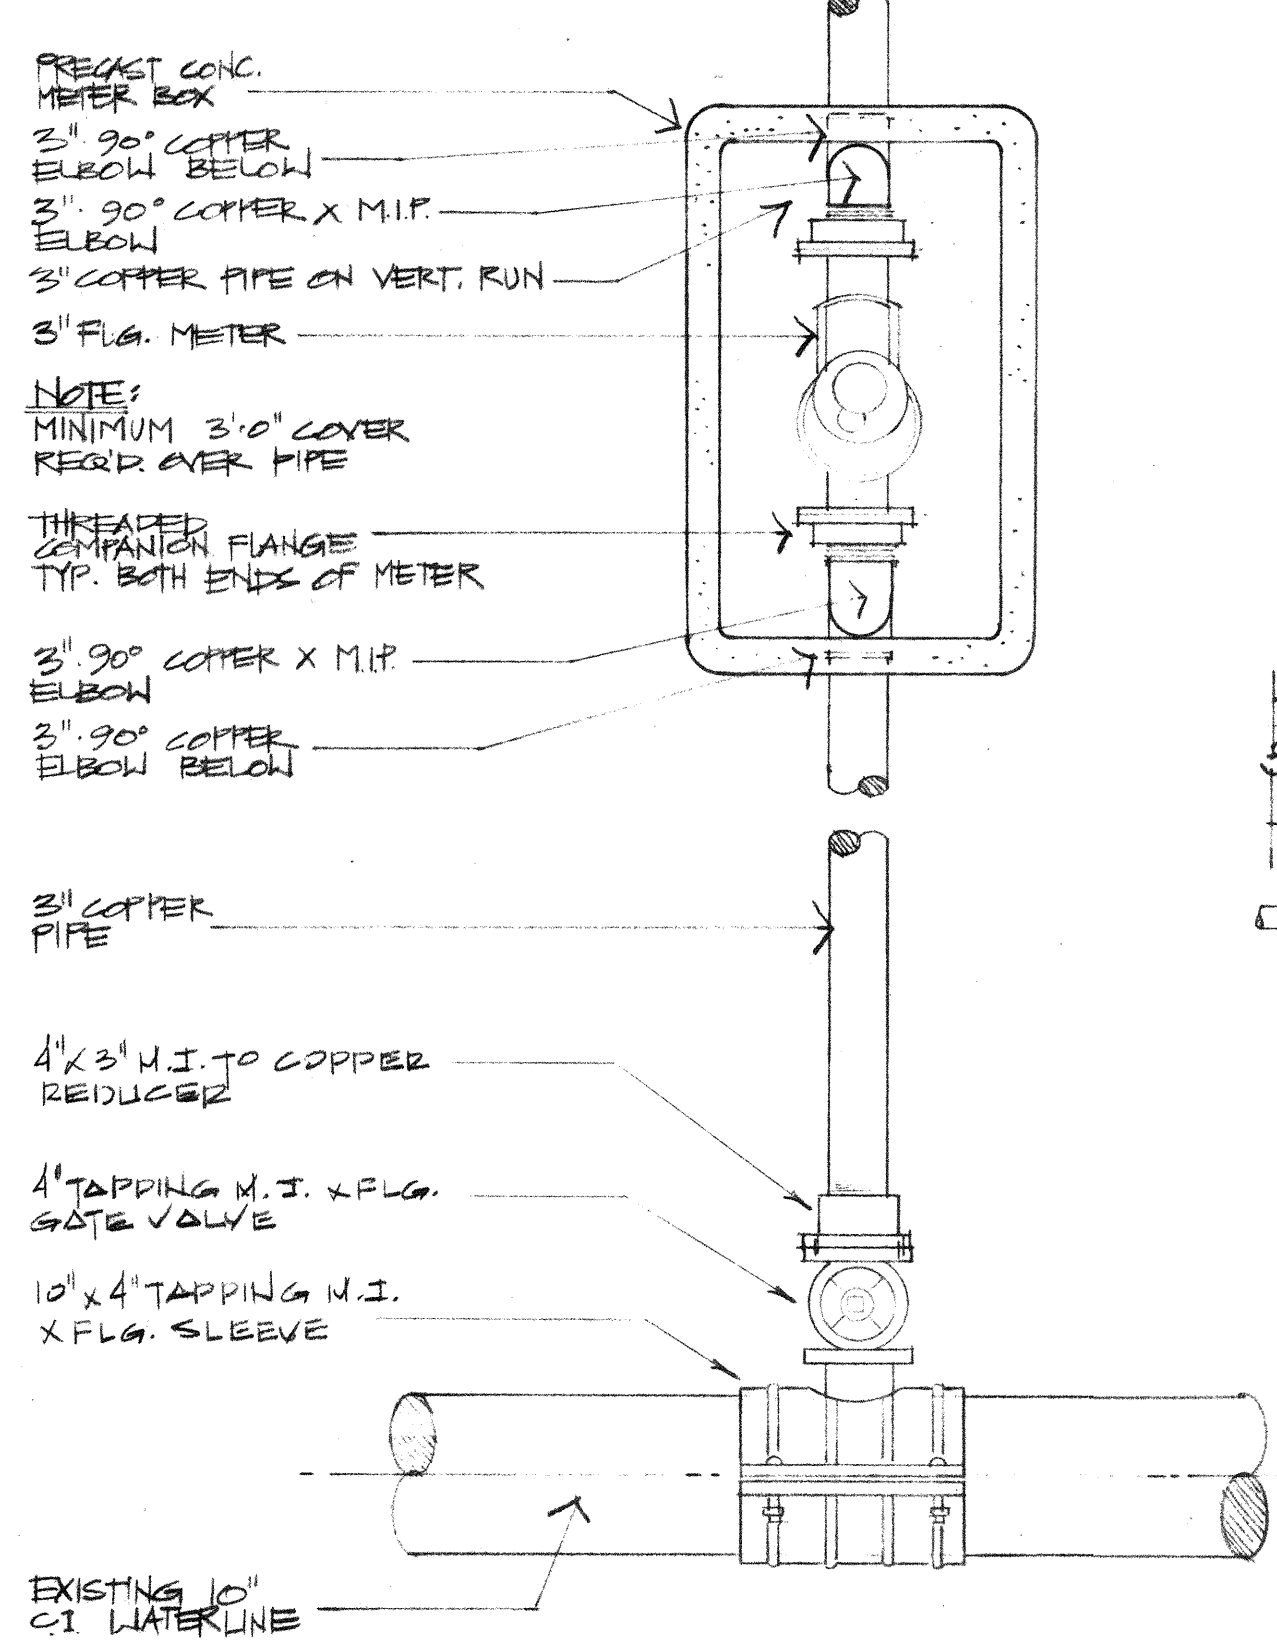 PRECAST CONC.
METER BOX
3"·90° COPPER
ELBOW BELOW
3"·90° COPPER X M.I.P.
ELBOW
3" COPPER PIPE ON VERT. RUN
3" FLG. METER
NOTE:
MINIMUM 3'·0" COVER
REQ'D. OVER PIPE
THREADED
COMPANION FLANGE
TYP. BOTH ENDS OF METER
3"·90° COPPER X M.I.P.
ELBOW
3"·90° COPPER
ELBOW BELOW
3" COPPER
PIPE
4" X 3" M.I. TO COPPER
REDUCER
4" TAPPING M.I. X FLG.
GATE VALVE
10" X 4" TAPPING M.I.
X FLG. SLEEVE
EXISTING 10"
C.I. WATERLINE